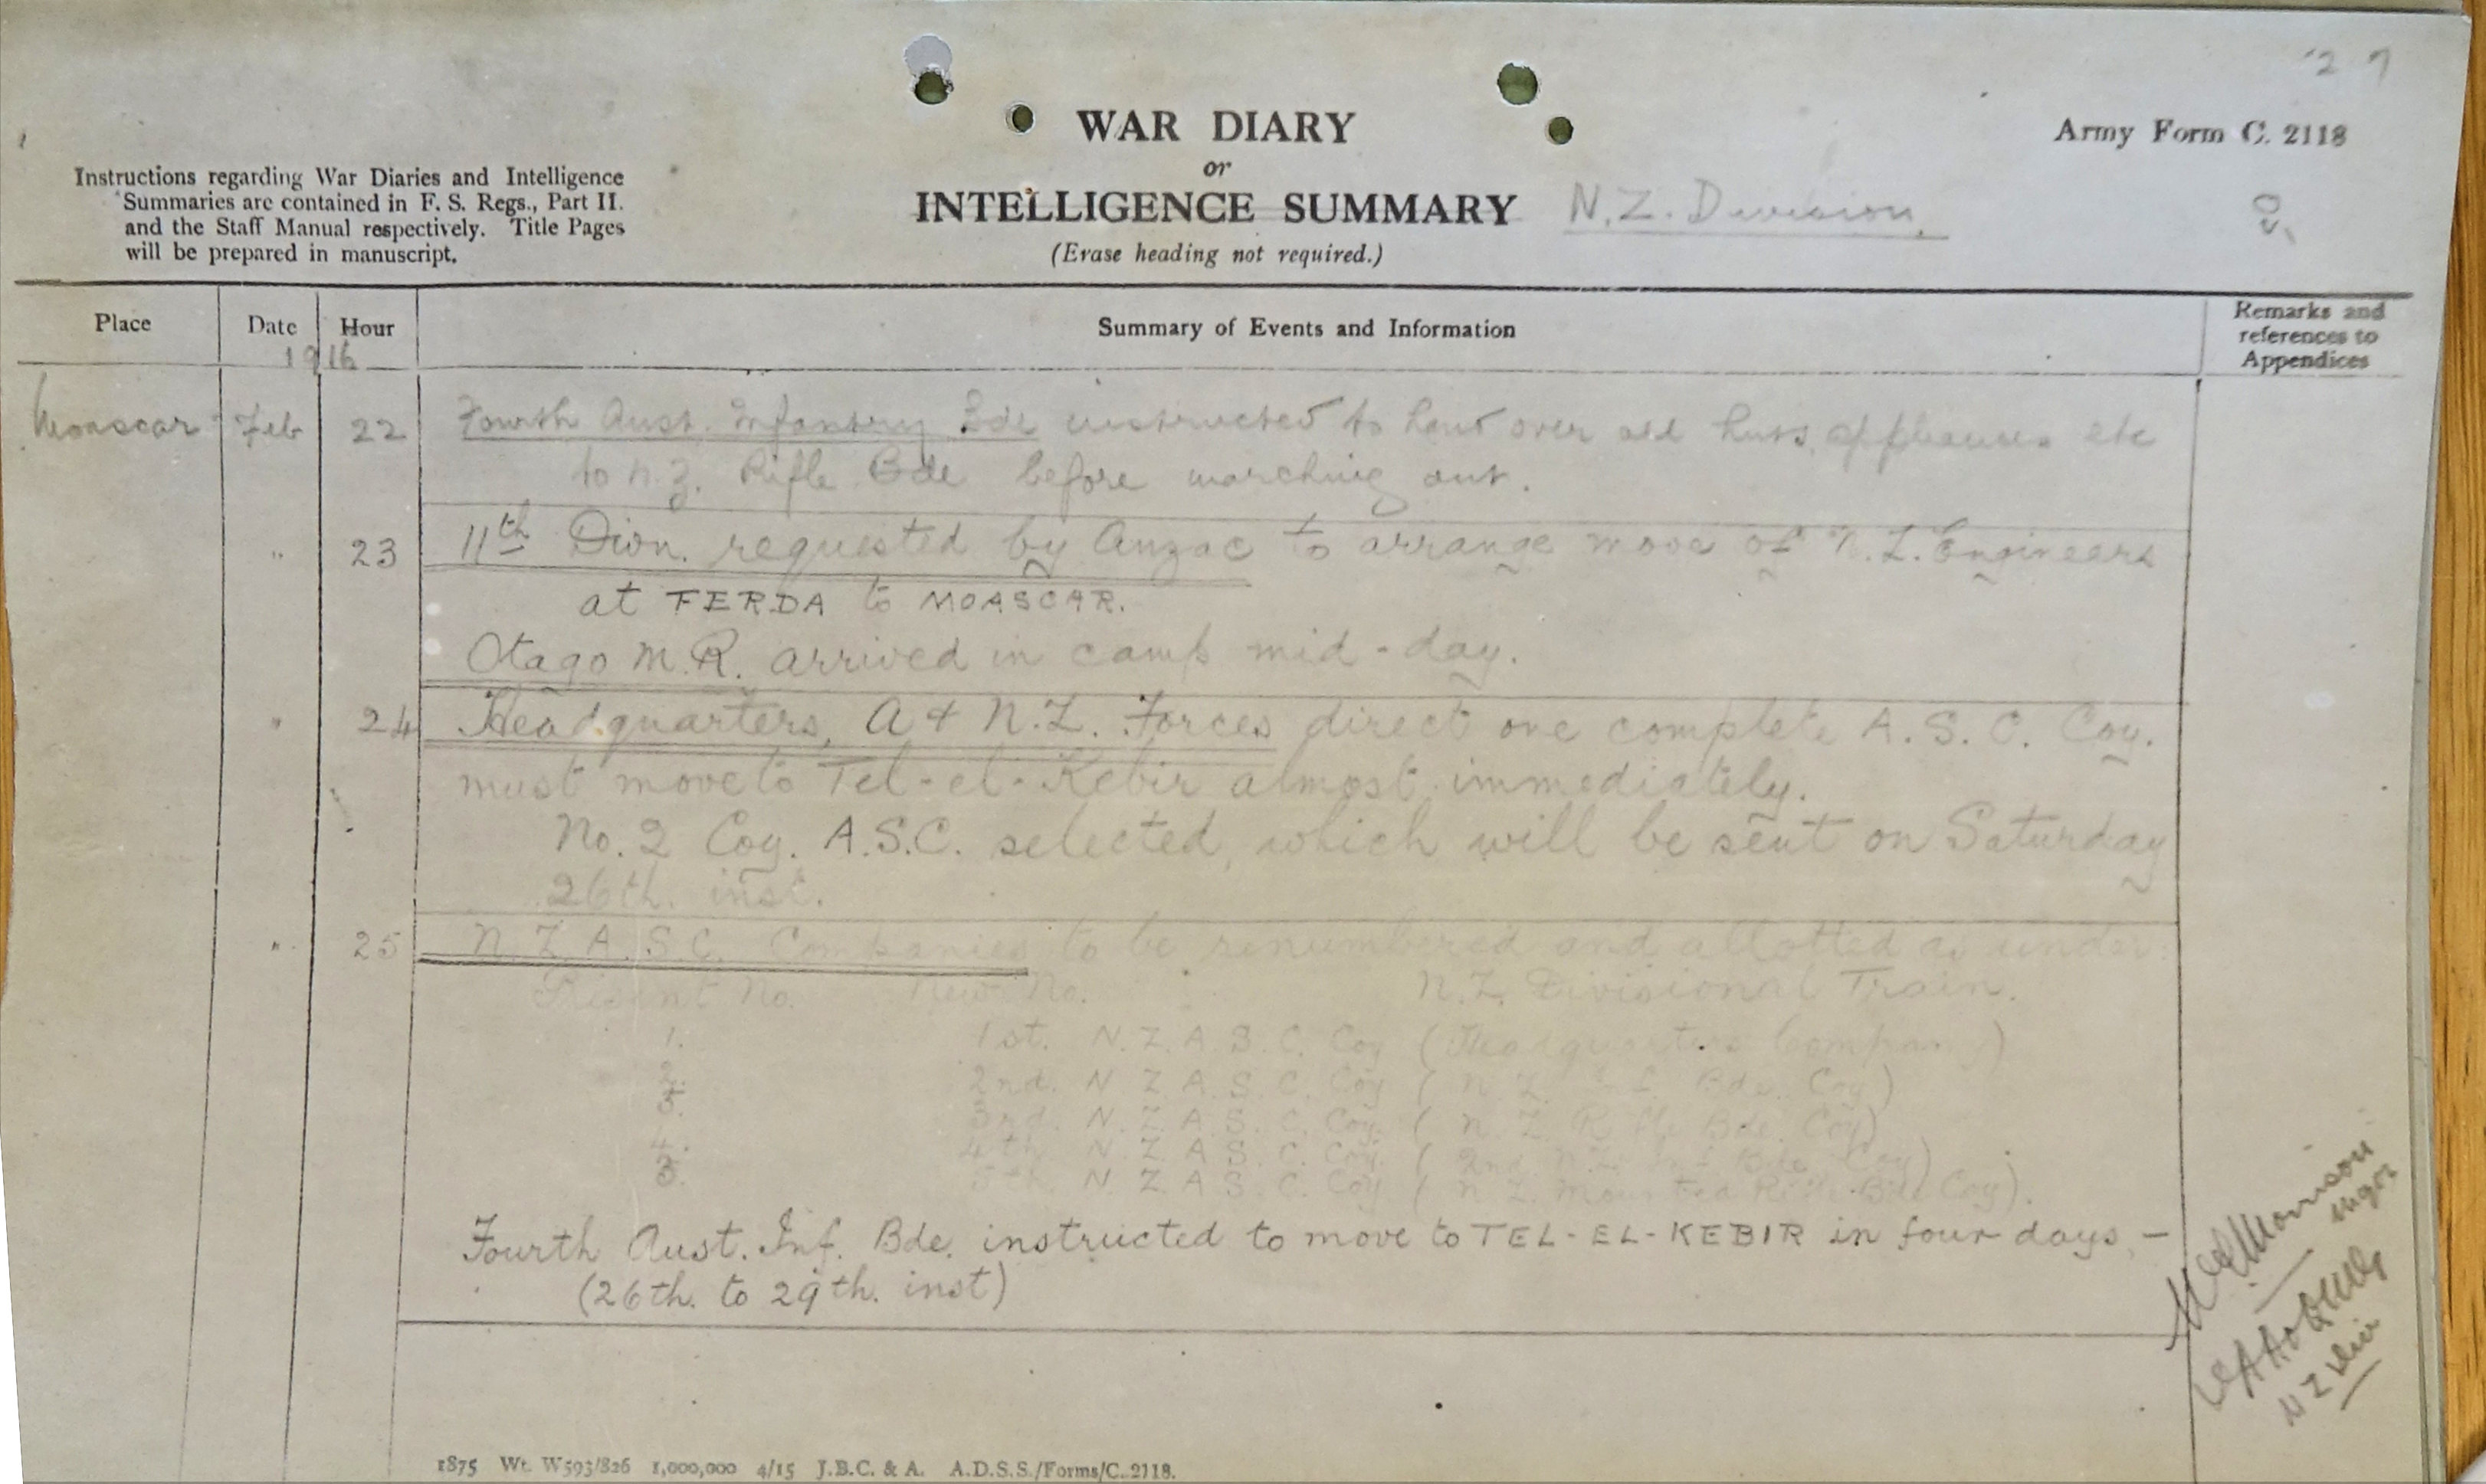 27
WAR DIARY
or
INTELLIGENCE SUMMARY
(Erase heading not required.)
N.Z. Division.
Army Form C. 2118
Instructions regarding War Diaries and Intelligence
Summaries are contained in F. S. Regs., Part II.
and the Staff Manual respectively. Title Pages
will be prepared in manuscript.
Place Date Hour Summary of Events and Information Remarks and
references to
Appendices
1916
Moascar Feb 22 Fourth Aust. Infantry Bde instructed to hand over all huts, appliances etc
to N.Z. Rifle Bde before marching out.
" 23 11th Divn. requested by Anzac to arrange move of N.Z. Engineers
at FERDA to MOASCAR.
Otago M.R. arrived in camp mid-day.
" 24 Headquarters, A & N.Z. Forces direct one complete A.S.C. Coy.
must move to Tel-el-Kebir almost immediately.
No. 2 Coy. A.S.C. selected, which will be sent on Saturday
26th. inst.
" 25 N.Z.A.S.C. Companies to be renumbered and allotted as under:
Present No. New No. N.Z. Divisional Train.
1. 1st. N.Z.A.S.C. Coy (Headquarters Company)
2. 2nd. N.Z.A.S.C. Coy (N.Z. Inf. Bde. Coy)
5. 3rd. N.Z.A.S.C. Coy. (N.Z. Rifle Bde. Coy)
4. 4th. N.Z.A.S.C. Coy. (2nd N.Z. Inf Bde Coy)
3. 5th. N.Z.A.S.C. Coy. (N.Z. Mounted Rifle Bde Coy).
Fourth Aust. Inf. Bde. instructed to move to TEL-EL-KEBIR in four days, -
(26th. to 29th. inst)
Morrison
Major
N Z Div
1875 Wt. W593/826 1,000,000 4/15 J.B.C. & A. A.D.S.S./Forms/C. 2118.